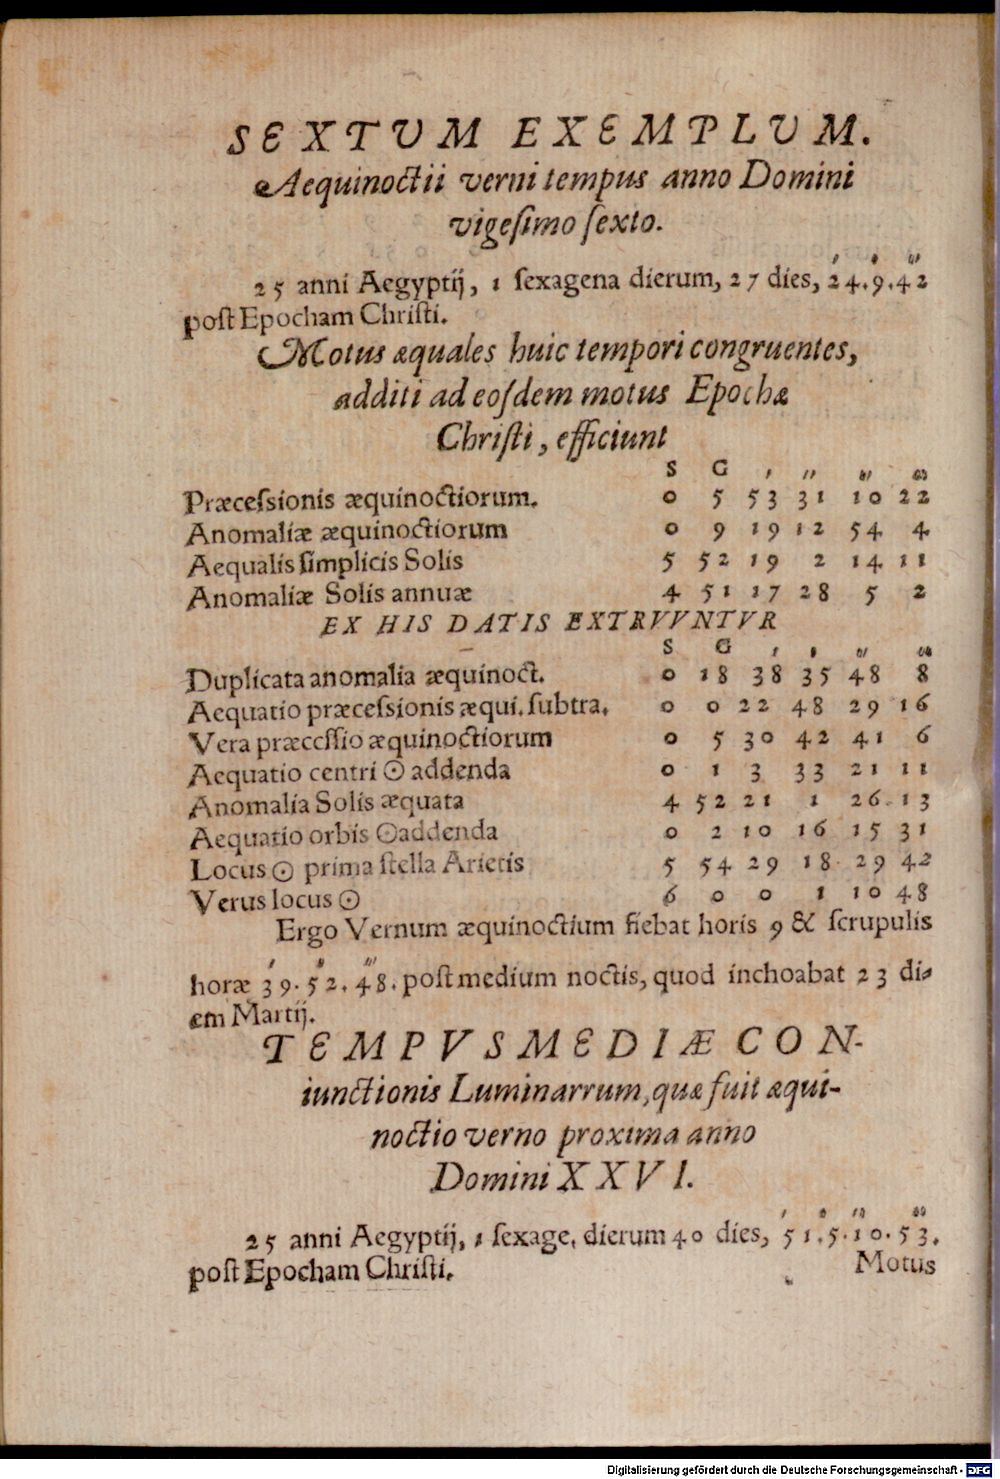 SEXTVM EXEMPLVM.
Aequinoctii verni tempus anno Domini
vigeſimo ſexto.
25 anni Aegyptij, 1 ſexagena dierum, 27 dies, 24.9.42
poſt Epocham Chriſti.
Motus æquales huic tempori congruentes,
additi ad eoſdem motus Epochæ
Chriſti, efficiunt
S G ′ ″ ‴ ⁗
Præceſsionis æquinoctiorum. 0 5 53 31 10 22
Anomaliæ æquinoctiorum 0 9 19 12 54 4
Aequalis ſimplicis Solis 5 52 19 2 14 11
Anomaliæ Solis annuæ 4 51 17 28 5 2
EX HIS DATIS EXTRVVNTVR
S G ′ ″ ‴ ⁗
Duplicata anomalia æquinoct. 0 18 38 35 48 8
Aequatio præceſsionis æqui. ſubtra. 0 0 22 48 29 16
Vera præceſſio æquinoctiorum 0 5 30 42 41 6
Aequatio centri ☉ addenda 0 1 3 33 21 11
Anomalia Solis æquata 4 52 21 1 26 13
Aequatio orbis ☉ addenda 0 2 10 16 15 31
Locus ☉ prima ſtella Arietis 5 54 29 18 29 42
Verus locus ☉ 6 0 0 1 10 48
Ergo Vernum æquinoctium fiebat horis 9 & ſcrupulis
′ ″ ‴
horæ 39.52.48. poſt medium noctis, quod inchoabat 23 di-
em Martij.
TEMPVS MEDIÆ CON-
iunctionis Luminarrum, quæ fuit æqui-
noctio verno proxima anno
Domini XXVI.
′ ″ ‴ ⁗
25 anni Aegyptij, 1 ſexage. dierum 40 dies, 51.5.10.53.
poſt Epocham Chriſti.
Motus
Digitalisierung gefördert durch die Deutsche Forschungsgemeinschaft - DFG